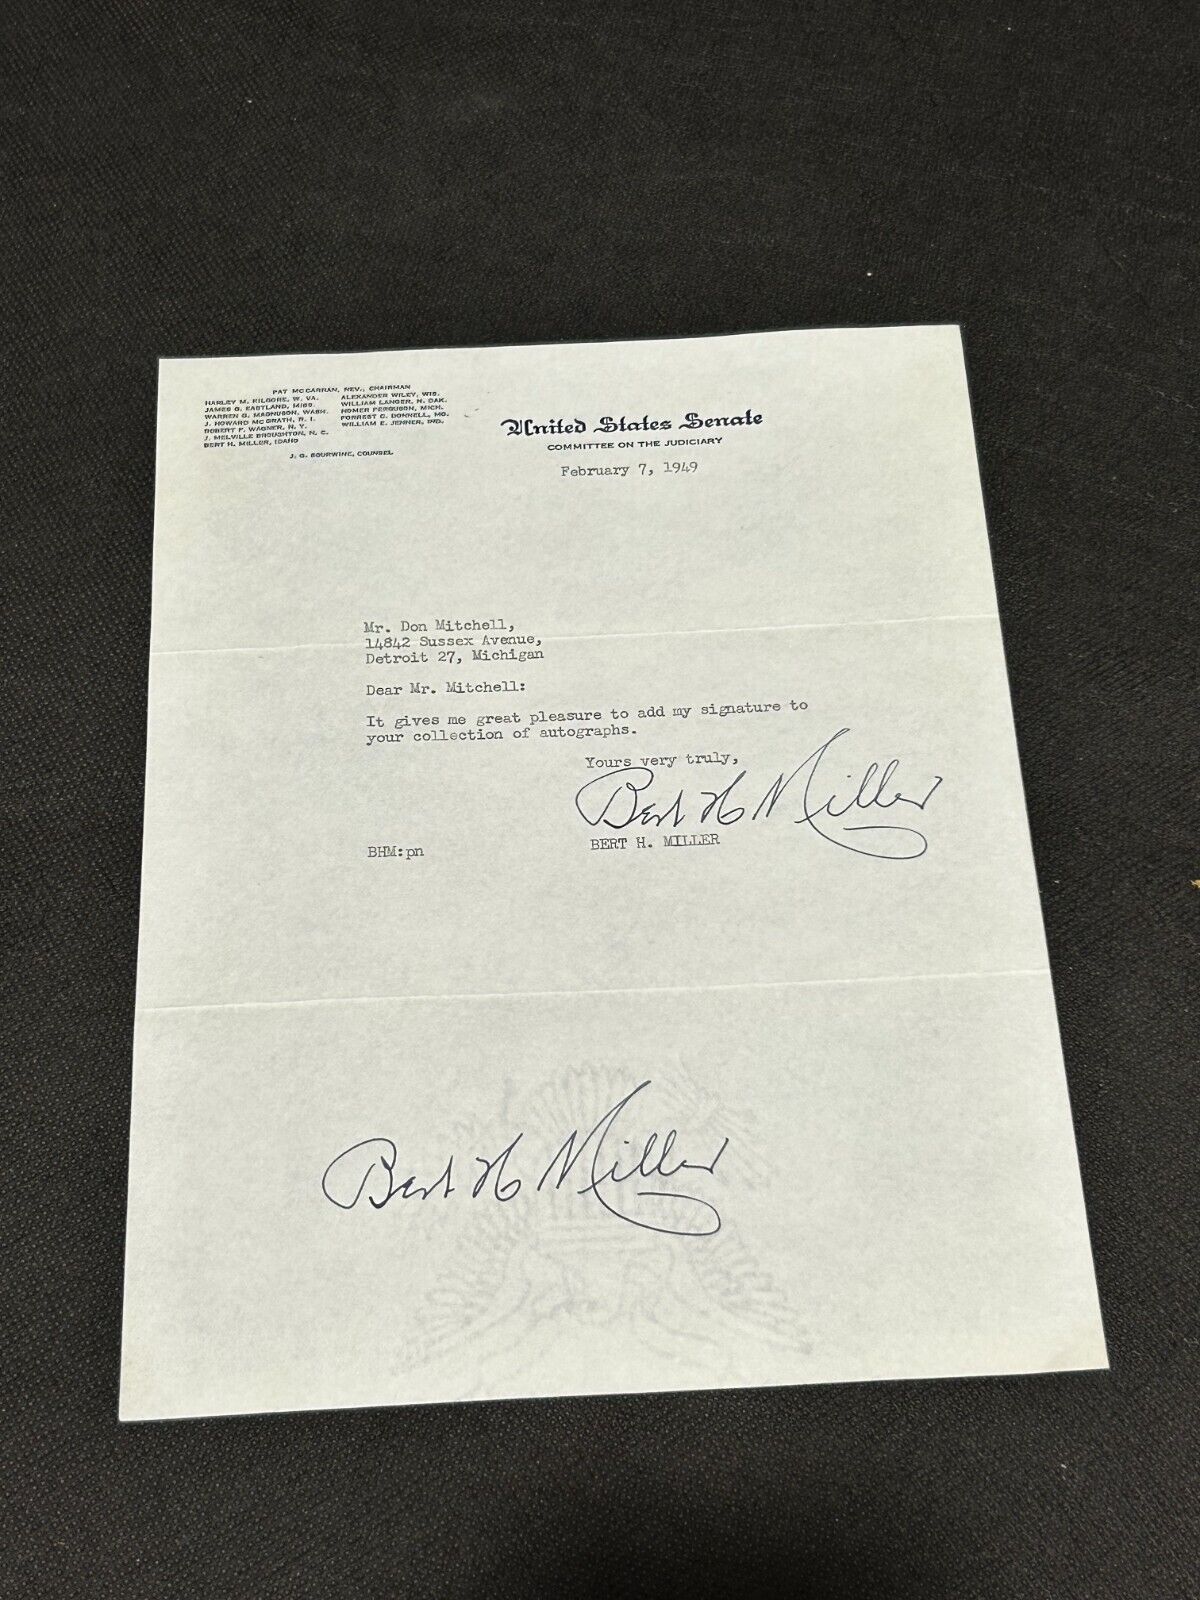 PAT MCCARRAN, NEV., CHAIRMAN
HARLEY M. KILGORE, W. VA.
JAMES O. EASTLAND, MISS.
WARREN G. MAGNUSON, WASH.
J. HOWARD MCGRATH, R. I.
ROBERT F. WAGNER, N. Y.
J. MELVILLE BROUGHTON, N. C.
BERT H. MILLER, IDAHO
ALEXANDER WILEY, WIS.
WILLIAM LANGER, N. DAK.
HOMER FERGUSON, MICH.
FORREST C. DONNELL, MO.
WILLIAM E. JENNER, IND.
J. G. SOURWINE, COUNSEL
United States Senate
COMMITTEE ON THE JUDICIARY
February 7, 1949
Mr. Don Mitchell,
14842 Sussex Avenue,
Detroit 27, Michigan
Dear Mr. Mitchell:
It gives me great pleasure to add my signature to
your collection of autographs.
Yours very truly,
Bert H Miller
BERT H. MILLER
BHM:pn
Bert H Miller